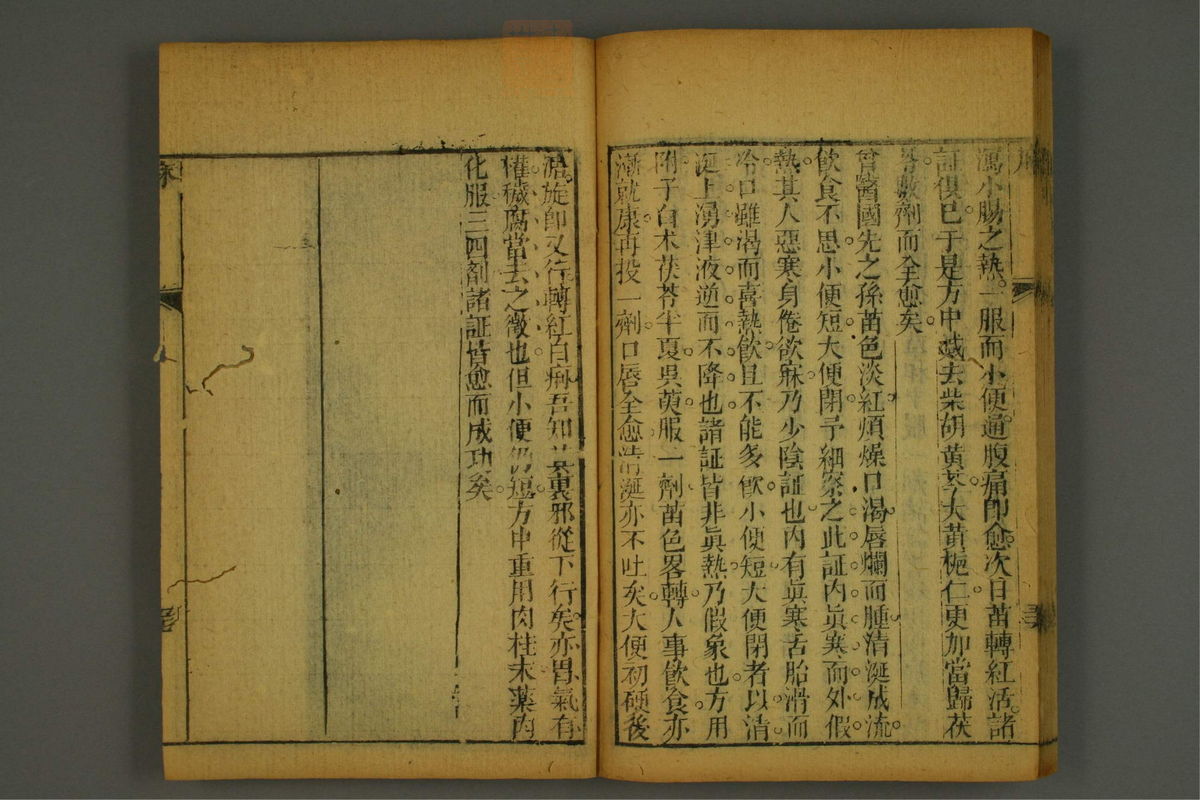 瀉小腸之熱一服而小便通腹痛即愈次日苗轉紅活諸
証俱已于是方中減去柴胡黄芩大黄梔仁更加當歸茯
苓數劑而全愈矣
曾醫國先之孫苗色淡紅煩燥口渴唇爛而腫清涎成流
飲食不思小便短大便閉予細察之此証内眞寒而外假
熱其人惡寒身倦欲寐乃少陰証也内有眞寒舌胎滑而
冷口雖渴而喜熱飲且不能多飲小便短大便閉者以清
涎上湧津液逆而不降也諸証皆非眞熱乃假象也方用
附子白术茯苓半夏吳萸服一劑苗色畧轉人事飲食亦
漸就康再投一劑口唇全愈清涎亦不吐矣大便初硬後
溏旋即又行轉紅白痢吾知其裏邪從下行矣亦胃氣有
權穢腐當去之徵也但小便仍短方中重用肉桂末藥内
化服三四劑諸証皆愈而成功矣